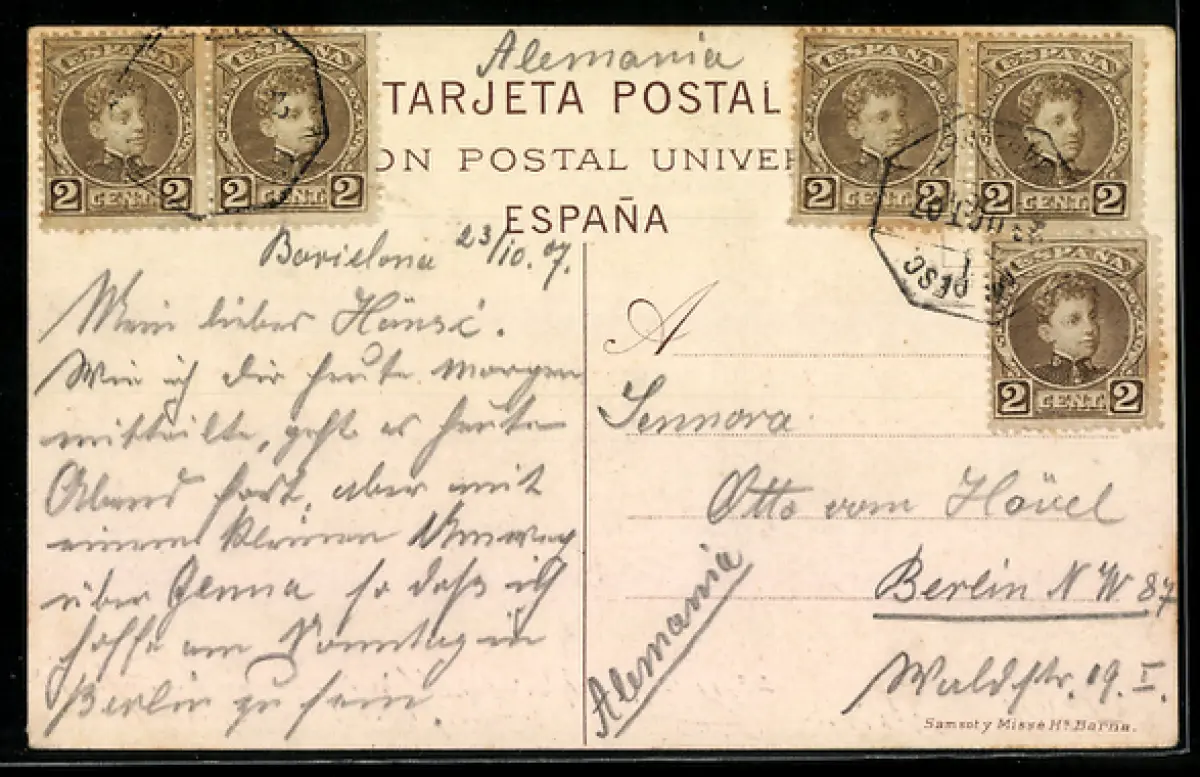 ESPAÑA
ESPAÑA
2 CENT. 2
2 CENT. 2
Alemania
TARJETA POSTAL
ON POSTAL UNIVER
ESPAÑA
ESPAÑA
ESPAÑA
2 CENT. 2
2 CENT. 2
ESPAÑA
2 CENT. 2
PESC
Barcelona 23/10.07.
Mein lieber
Wie ich Dir heute Morgen
mitteilte, geht es heute
Abend fort, aber mit
einem kleinen Umweg
über Genua so daß ich
hoffe am Sonntag in
Berlin zu sein.
A
Sennora
Otto vom Hövel
Berlin N W 87
Waldstr. 19. I.
Alemania
Samsot y Missé Hs. Barna.